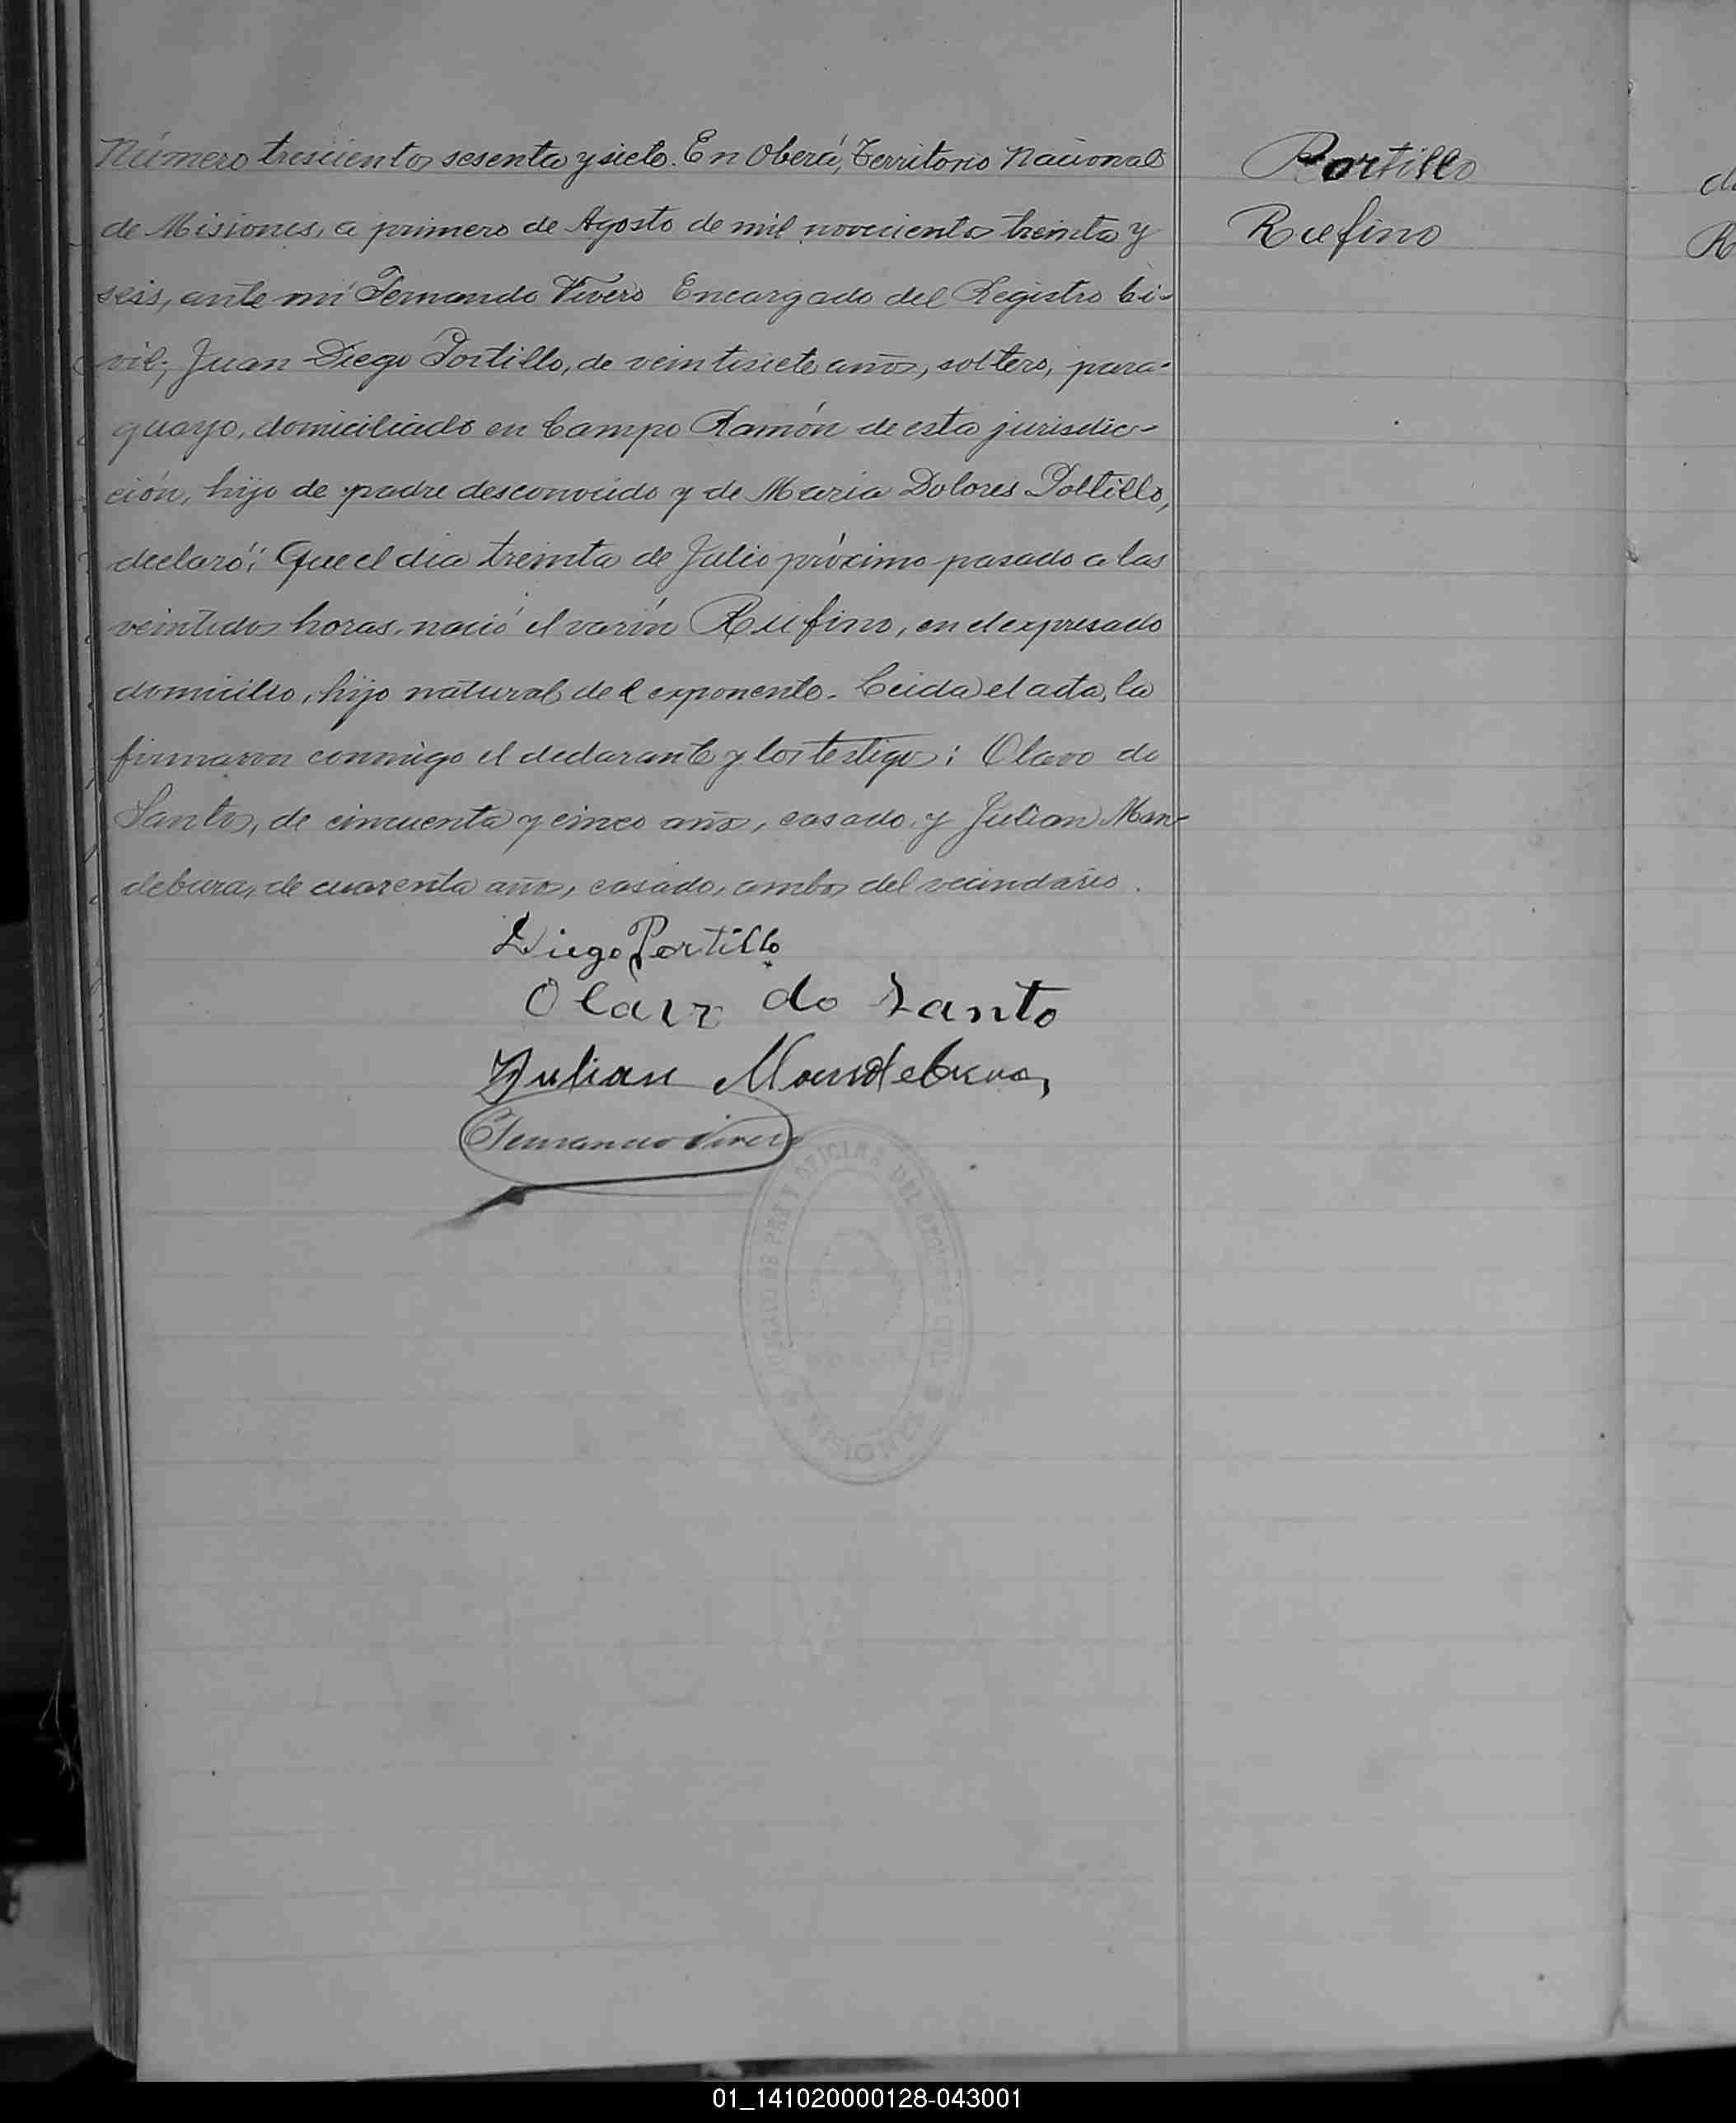 Número trescientos sesenta y siete. En Oberá, Territorio Nacional
de Misiones, a primero de Agosto de mil novecientos treinta y
seis, ante mi Fernando Vivero Encargado del Registro Ci-
vil; Juan Diego Portillo, de veintisiete años, soltero, para-
guayo, domiciliado en Campo Ramón de esta jurisdic-
ción, hijo de padre desconocido y de Maria Dolores Poltillo,
declaró: Que el dia treinta de Julio próximo pasado a las
veintidos horas, nació el varón Rufino, en el expresado
domicilio, hijo natural del exponente. Leida el acta, la
firmaron conmigo el declarante y los testigos: Olavo do
Santos, de cincuenta y cinco años, casado, y Julian Man-
debura, de cuarenta años, casado, ambos del vecindario.
Diego Portillo
do Santo
Julian Mandebura
Fernando Vivero
JUZGADO DE PAZ Y OFICINA DEL REGISTRO CIVIL
MISIONES
Portillo
Rufino
01_141020000128-043001